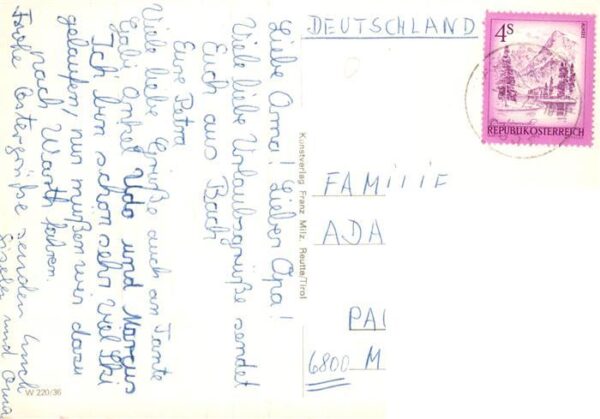 Liebe Oma! Lieber Opa!
Viele liebe Urlaubsgrüße sendet
Euch aus Bach
Eure Petra
Viele liebe Grüße auch an Tante
Gabi Onkel Udo und Markus
Ich bin schon sehr viel Ski
gelaufen, nur müßen wir dazu
nach Warth fahren.
Frohe Ostergrüße senden Euch
Gisela und Oma
W 220/36
Kunstverlag Franz Milz, Reutte/Tirol
DEUTSCHLAND
4S
REPUBLIK ÖSTERREICH
FAMILIE
ADA
PAL
6800 M